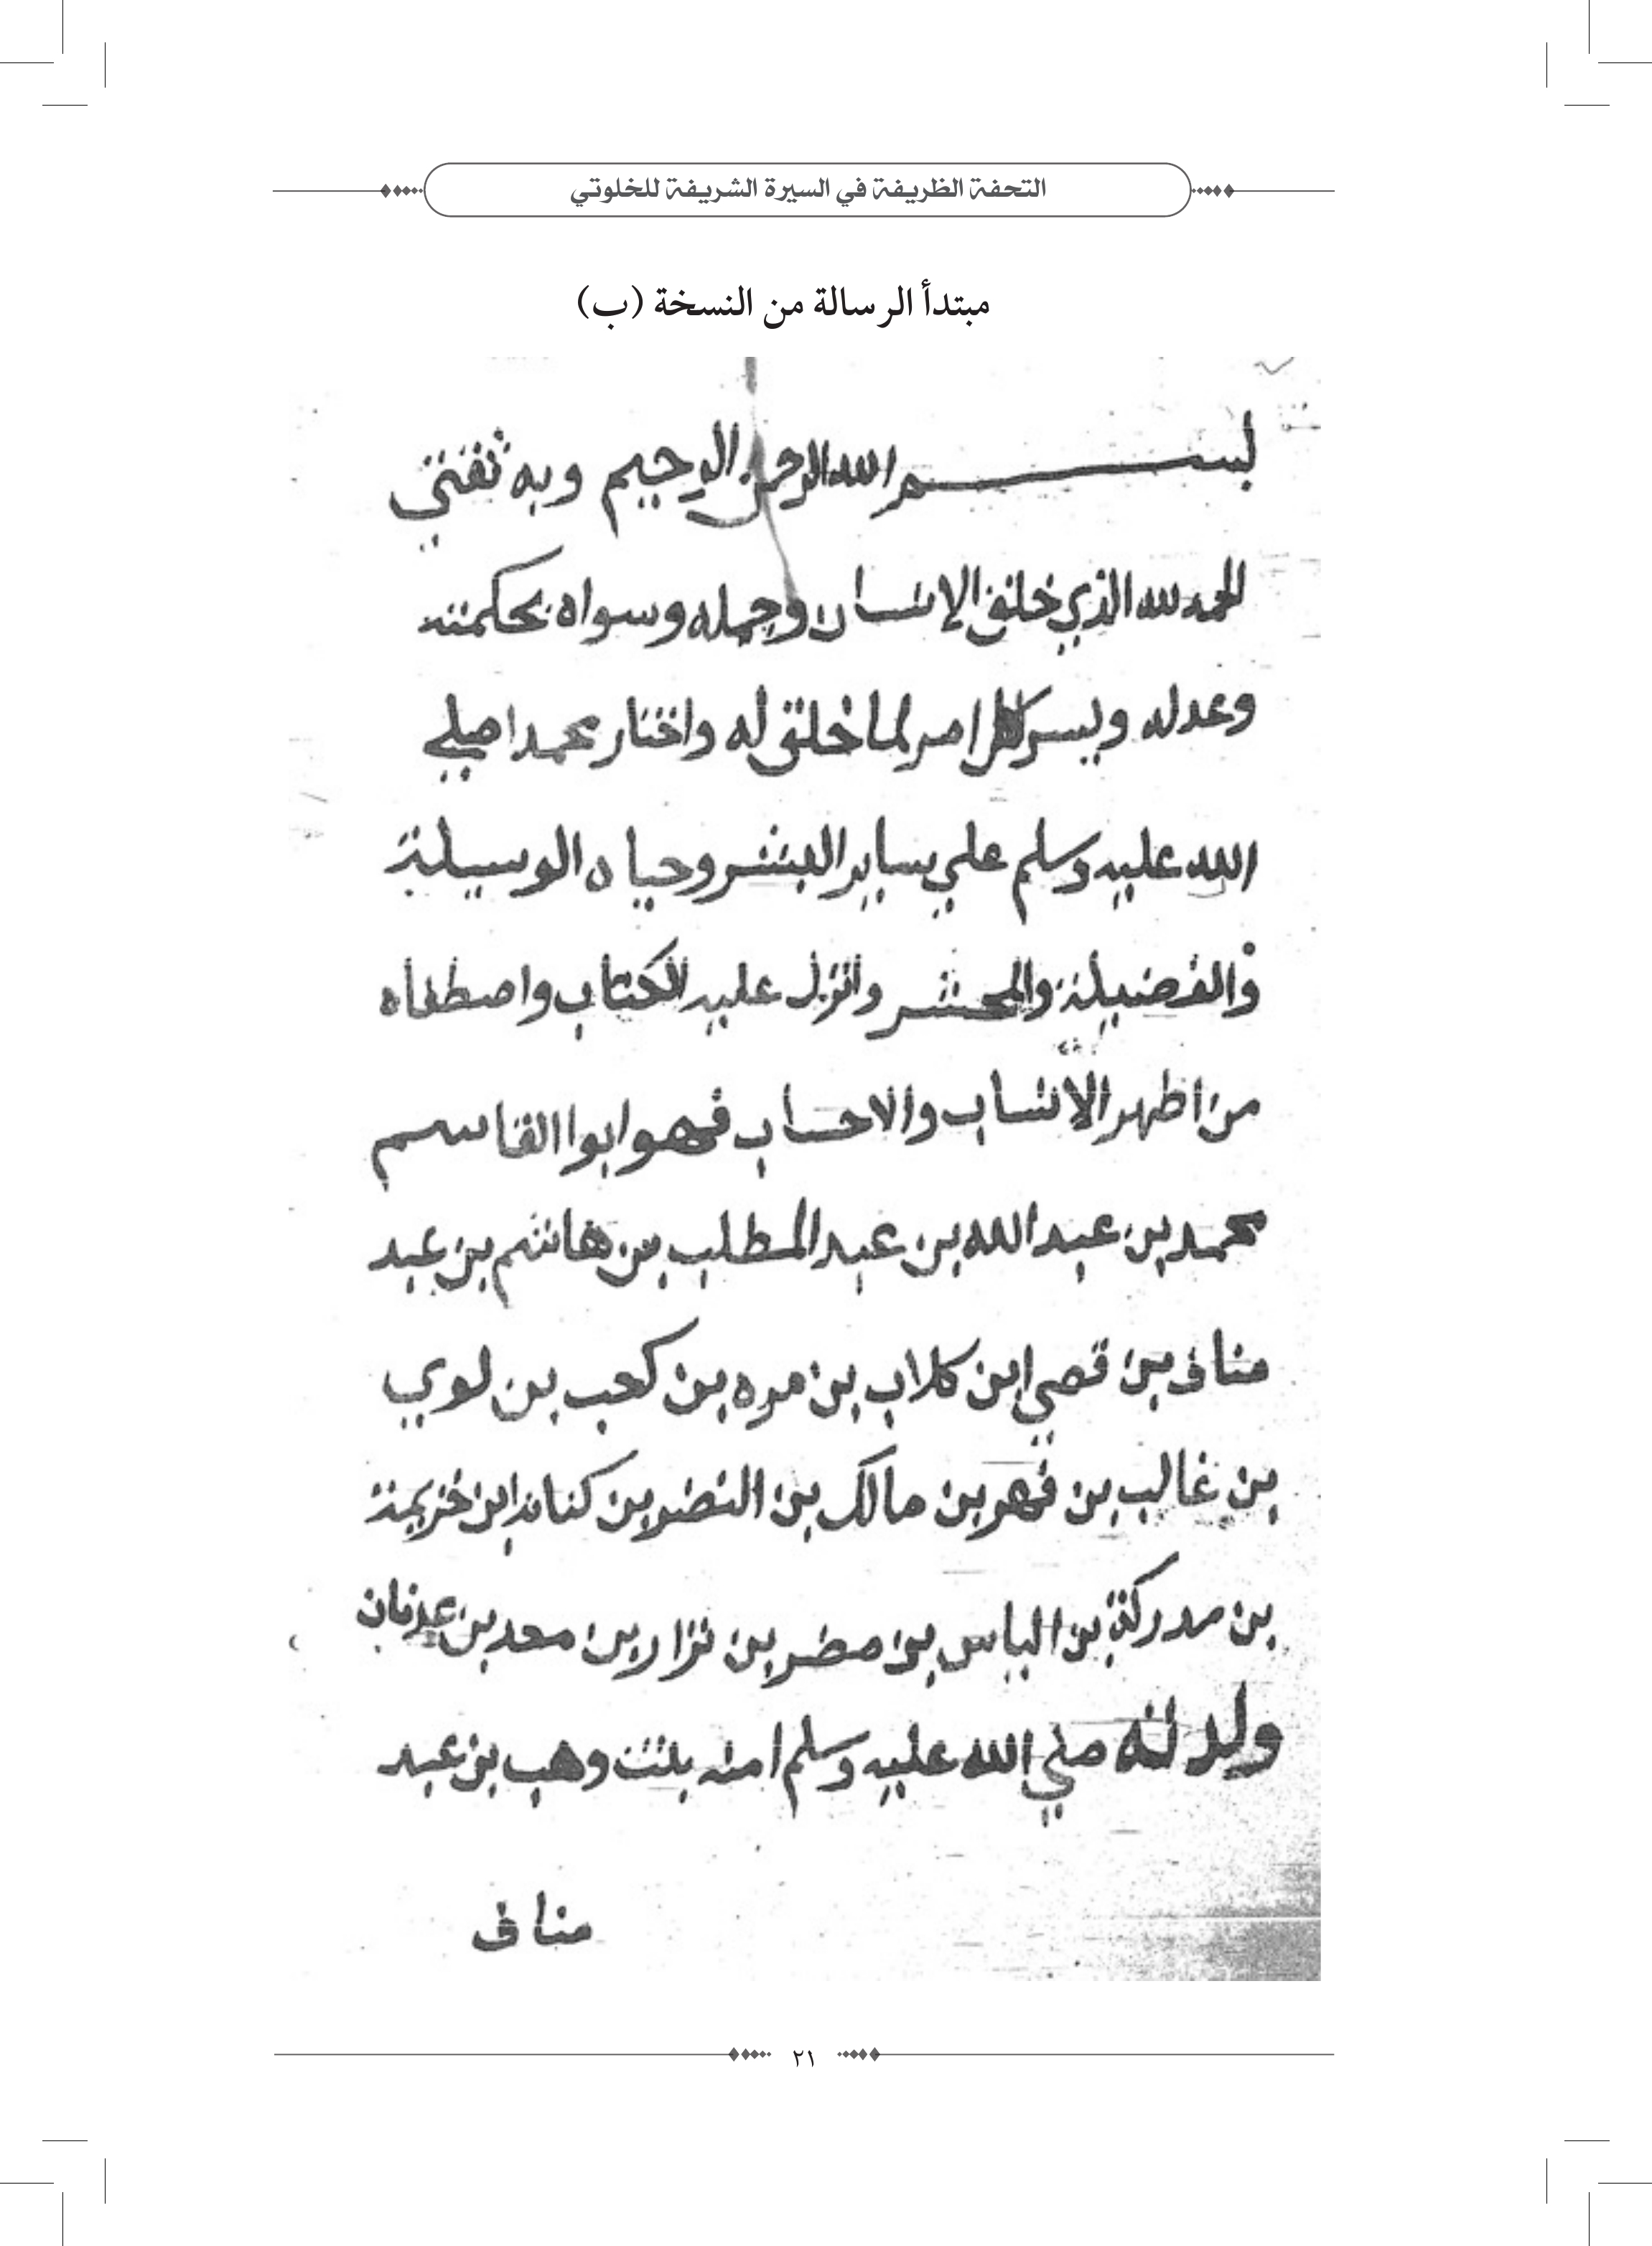 التحفة الظريفة في السيرة الشريفة للخلوتي
مبتدأ الرسالة من النسخة (ب)
بسم الله الرحمن الرحيم وبه ثقتي
الحمد لله الذي خلق الانسان وجمله وسواه بحكمته
وعدله ويسر كل امر لما خلق له واختار محمدا صلي
الله عليه وسلم علي ساير البشر وحباه الوسيلة
والفضيلة والمحشر وانزل عليه الكتاب واصطفاه
من اظهر الانساب والاحساب فهو ابوا القاسم
محمد بن عبد الله بن عبد المطلب بن هاشم بن عبد
مناف بن قصي ابن كلاب بن مره بن كعب بن لوي
بن غالب بن فهر بن مالك بن النضر بن كنانه ابن خزيمة
بن مدركة بن الياس بن مضر بن نزار بن معد بن عدنان
ولدته صلي الله عليه وسلم امنه بنت وهب بن عبد
مناف
٢١